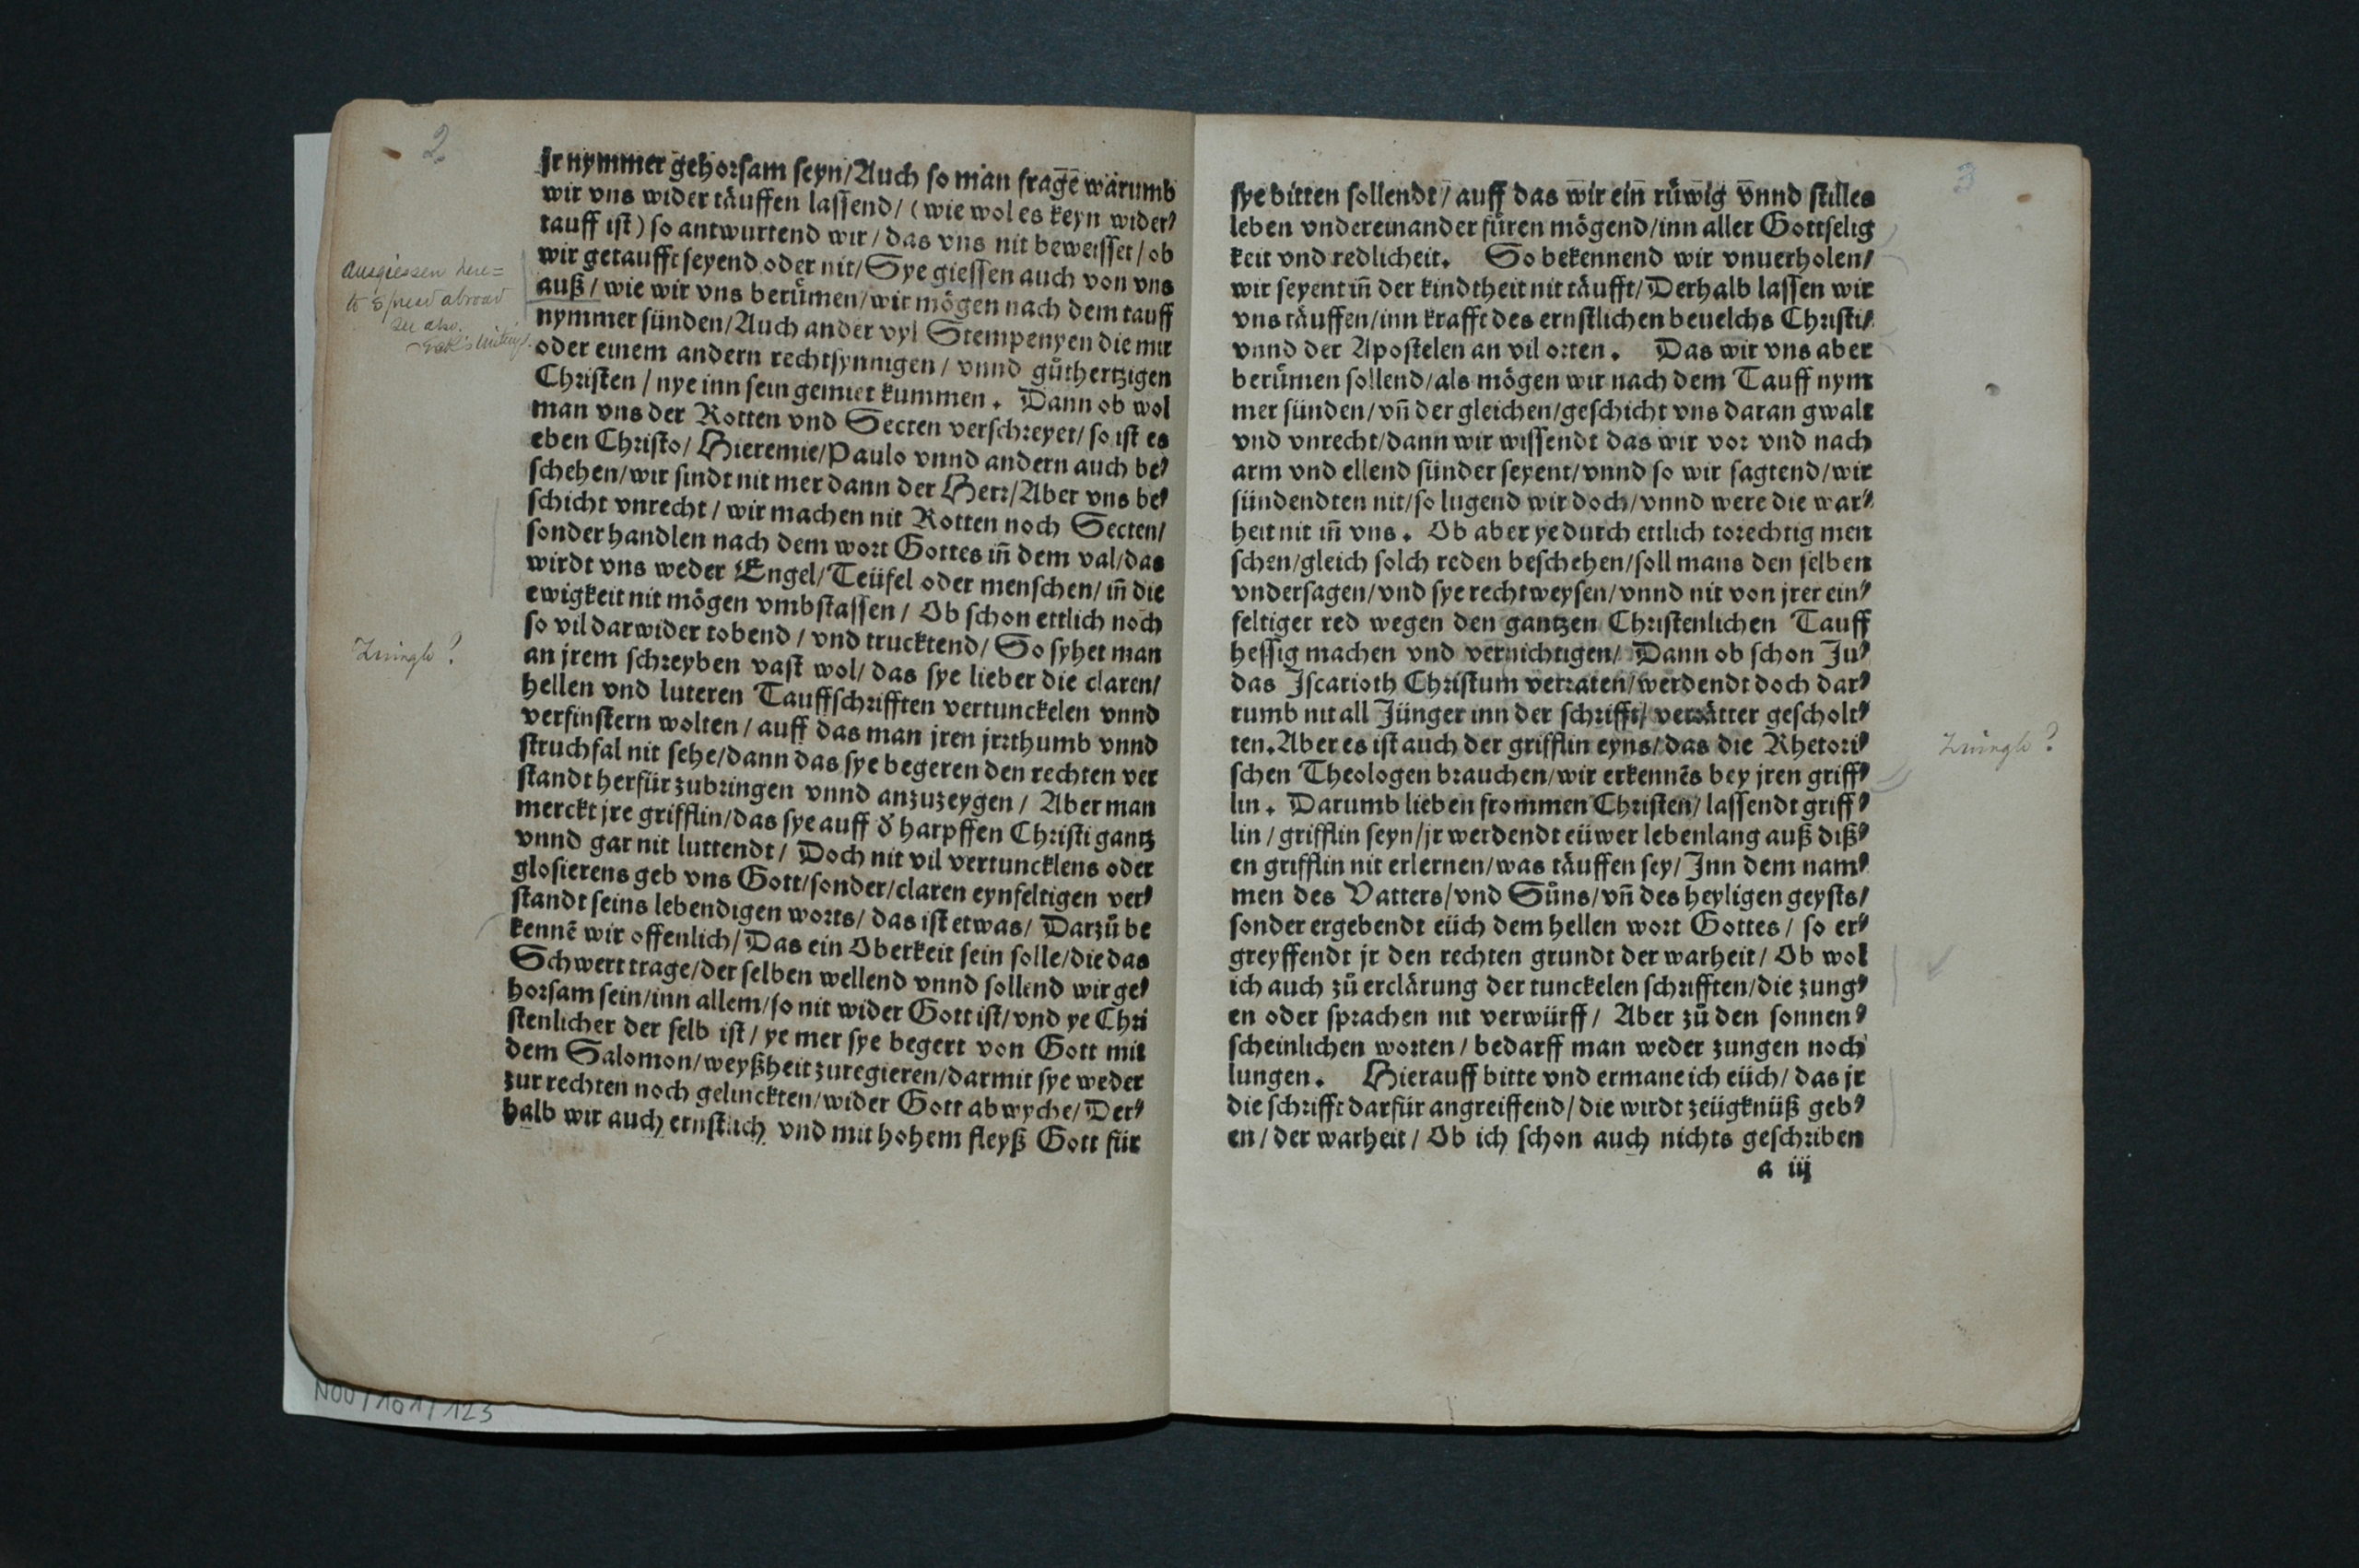 2
jr nymmer gehorsam seyn/Auch so man fragē warumb
wir vns wider täuffen lassend/ (wie wol es keyn wider⸗
tauff ist) so antwurtend wir/das vns nit beweisset/ob
wir getaufft seyend oder nit/Sye giessen auch von vns
auß/wie wir vns berůmen/wir mögen nach dem tauff
nymmer sünden/Auch ander vyl Stempenyen die mir
oder einem andern rechtsynnigen/vnnd gůthertzigen
Christen/nye inn sein gemiet kummen. Dann ob wol
man vns der Rotten vnd Secten verschreyet/so ist es
eben Christo/Hieremie/Paulo vnnd andern auch be⸗
schehen/wir sindt nit mer dann der Herr/Aber vns be⸗
schicht vnrecht/wir machen nit Rotten noch Secten/
sonder handlen nach dem wort Gottes iñ dem val/das
wirdt vns weder Engel/Teüfel oder menschen/iñ die
ewigkeit nit mögen vmbstassen/Ob schon ettlich noch
so vil darwider tobend/vnd trucktend/So syhet man
an jrem schreyben vast wol/das sye lieber die claren/
hellen vnd luteren Tauffschrifften vertunckelen vnnd
verfinstern wolten/auff das man jren jrrthumb vnnd
struchfal nit sehe/dann das sye begeren den rechten ver
standt herfür zubringen vnnd anzuzeygen/Aber man
merckt jre grifflin/das sye auff ð harpffen Christi gantz
vnnd gar nit luttendt/Doch nit vil vertuncklens oder
glosierens geb vns Gott/sonder/claren eynfeltigen ver⸗
standt seins lebendigen worts/das ist etwas/Darzů be
kennē wir offenlich/Das ein Oberkeit sein solle/die das
Schwert trage/der selben wellend vnnd sollend wir ge⸗
horsam sein/inn allem/so nit wider Gott ist/vnd ye Chri
stenlicher der selb ist/ye mer sye begert von Gott mit
dem Salomon/weyßheit zuregieren/darmit sye weder
zur rechten noch gelinckten/wider Gott abwyche/Der⸗
halb wir auch ernstlich vnd mit hohem fleyß Gott für
Ausgiessen here=
to spread abroad
see also
Zwingli!
N00/101/123
3
sye bitten sollendt/auff das wir ein rüwig vnnd stilles
leben vndereinander füren mögend/inn aller Gottselig
keit vnd redlicheit. So bekennend wir vnuerholen/
wir seyent iñ der kindtheit nit täufft/Derhalb lassen wir
vns täuffen/inn krafft des ernstlichen beuelchs Christi/
vnnd der Apostelen an vil orten. Das wir vns aber
berůmen sollend/als mögen wir nach dem Tauff nym
mer sünden/vñ der gleichen/geschicht vns daran gwalt
vnd vnrecht/dann wir wissendt das wir vor vnd nach
arm vnd ellend sünder seyent/vnnd so wir sagtend/wir
sündendten nit/so lugend wir doch/vnnd were die war⸗
heit nit iñ vns. Ob aber ye durch ettlich torechtig men
schen/gleich solch reden beschehen/soll mans den selben
vndersagen/vnd sye recht weysen/vnnd nit von jrer ein⸗
feltiger red wegen den gantzen Christenlichen Tauff
hessig machen vnd vernichtigen/Dann ob schon Ju⸗
das Iscarioth Christum verraten/werdendt doch dar⸗
rumb nit all Jünger inn der schrifft/verrätter gescholt⸗
ten. Aber es ist auch der grifflin eyns/das die Rhetori⸗
schen Theologen brauchen/wir erkennēs bey jren griff⸗
lin. Darumb lieben frommen Christen/lassendt griff⸗
lin/grifflin seyn/jr werdendt eüwer lebenlang auß diß⸗
en grifflin nit erlernen/was täuffen sey/Inn dem nam⸗
men des Vatters/vnd Sůns/vñ des heyligen geysts/
sonder ergebendt eüch dem hellen wort Gottes/so er⸗
greyffendt jr den rechten grundt der warheit/Ob wol
ich auch zů erclärung der tunckelen schrifften/die zung⸗
en oder sprachen nit verwürff/Aber zů den sonnen⸗
scheinlichen worten/bedarff man weder zungen noch
lungen. Hierauff bitte vnd ermane ich eüch/das jr
die schrifft darfür angreiffend/die wirdt zeügknüß geb⸗
en/der warheit/Ob ich schon auch nichts geschriben
a iij
Zwingli?